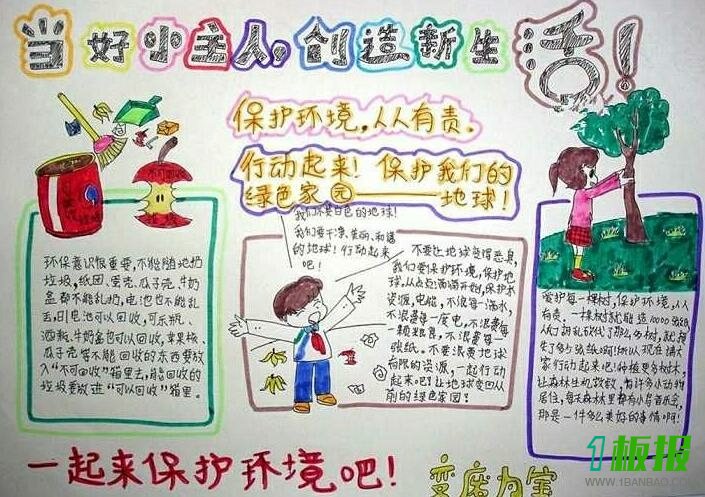 当好小主人,创造新生活!
保护环境,人人有责。
行动起来!保护我们的
绿色家园——地球!
环保意识很重要,不能随地扔
垃圾,纸团、蛋壳、瓜子壳、牛奶
盒都不能乱扔,电池也不能乱
丢,旧电池可以回收,可乐瓶、
酒瓶、牛奶盒也可以回收,苹果核、
瓜子壳等不能回收的东西要放
入“不可回收”箱里去,能回收的
垃圾要放进“可以回收”箱里。
我们不要白色的地球!
我们要干净、美丽、和谐
的地球!行动起来
吧!
不要让地球变得恶臭,
我们要保护环境,保护地
球,从点点滴滴开始,保护水
资源,电能,不浪费一滴水,
不浪费一度电,不浪费
一颗粮食,不浪费一
张纸。不要浪费地球
有限的资源,一起行动
起来吧!让地球变回从
前的绿色家园!
爱护每一棵树,保护环境,人人
有责。一棵树就能造10000张纸,
人们胡乱砍伐了那么多树,就损
失了多少张纸啊!所以现在请大
家行动起来吧!种植更多树木,
让森林生机勃勃,有许多小动物
居住,每天森林里都有小鸟音乐会,
那是一件多么美好的事情啊!
一起来保护环境吧!
变废为宝
1板报
WWW.1BANBAO.COM